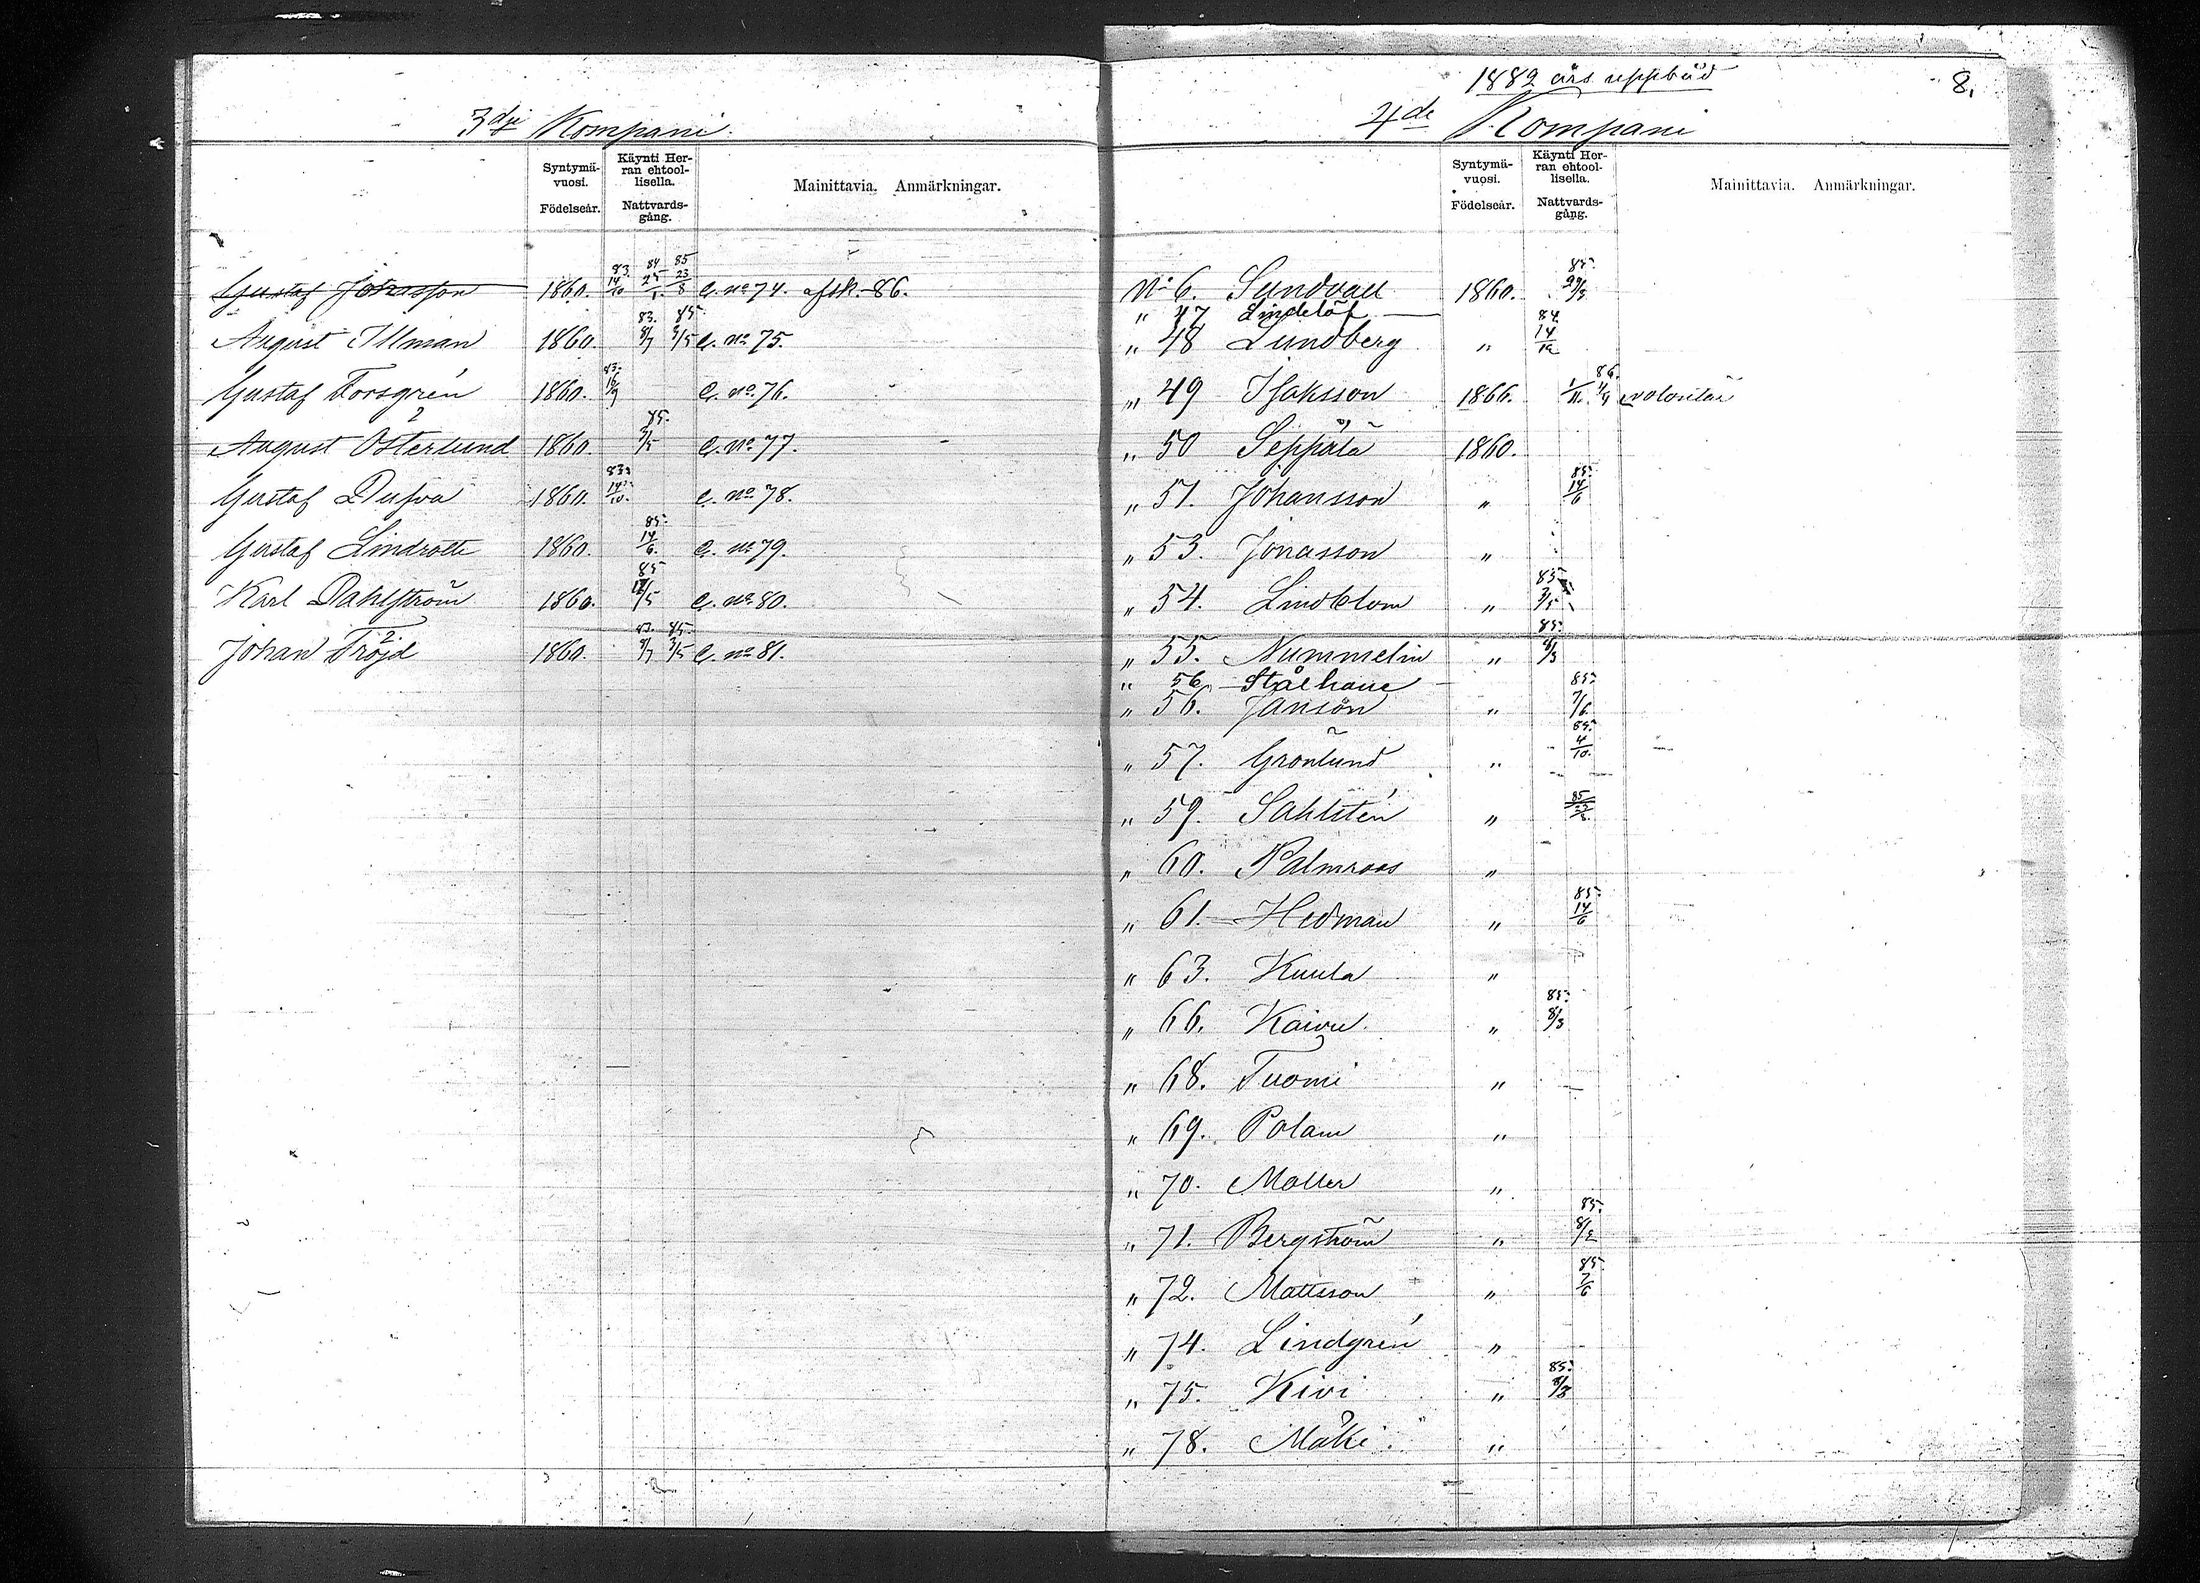 3dje Kompani.
Syntymä-vuosi. Födelseår.
Käynti Her-ran ehtool-lisella. Nattvards-gång.
Mainittavia. Anmärkningar.
Gustaf Johansson 1860. 83. 14/10 84 85 23/8 C. no 74. afsk. 86.
August Illman 1860. 83. 8/7 85. 3/5 C. no 75.
Gustaf Forsgrén 1860. 83. 16/9 C. no 76.
August Österlund 1860. 85. 3/5 C. no 77.
Gustaf Dufva 1860. 83. 14/10. C. no 78.
Gustaf Lindroth 1860. 85. 14/6. C. no 79.
Karl Dahlström 1860. 85 C. no 80.
Johan Fröjd 1860. 83. 8/7 85. 3/5 C. no 81.
1882 års uppbåd 8.
4de Kompani
Syntymä-vuosi. Födelseår.
Käynti Her-ran ehtool-lisella. Nattvards-gång.
Mainittavia. Anmärkningar.
No 6. Sundvall 1860. 85.
" 47 Lindelöf
" 48 Lundberg " 84. 14/12
" 49 Isaksson 1866. 86. volontär
" 50 Seppälä 1860.
" 51. Johansson " 85. 14/6
" 53. Jonasson "
" 54. Lindblom " 85. 3/5
" 55. Nummelin " 85. 8/3
" 56 Stålhane
" 56. Janson " 85. 7/6
" 57. Grönlund " 85. 4/10.
" 59. Sahlstén " 85
" 60. Palmroos "
" 61. Hedman " 85. 14/6
" 63. Kuula "
" 66. Kaivu. " 85. 8/3
" 68. Tuomi "
" 69. Polam "
" 70. Moller "
" 71. Bergström " 85.
" 72. Mattsson " 85. 7/6
" 74. Lindgrén "
" 75. Kivi " 85. 8/3
" 78. Mäki. "